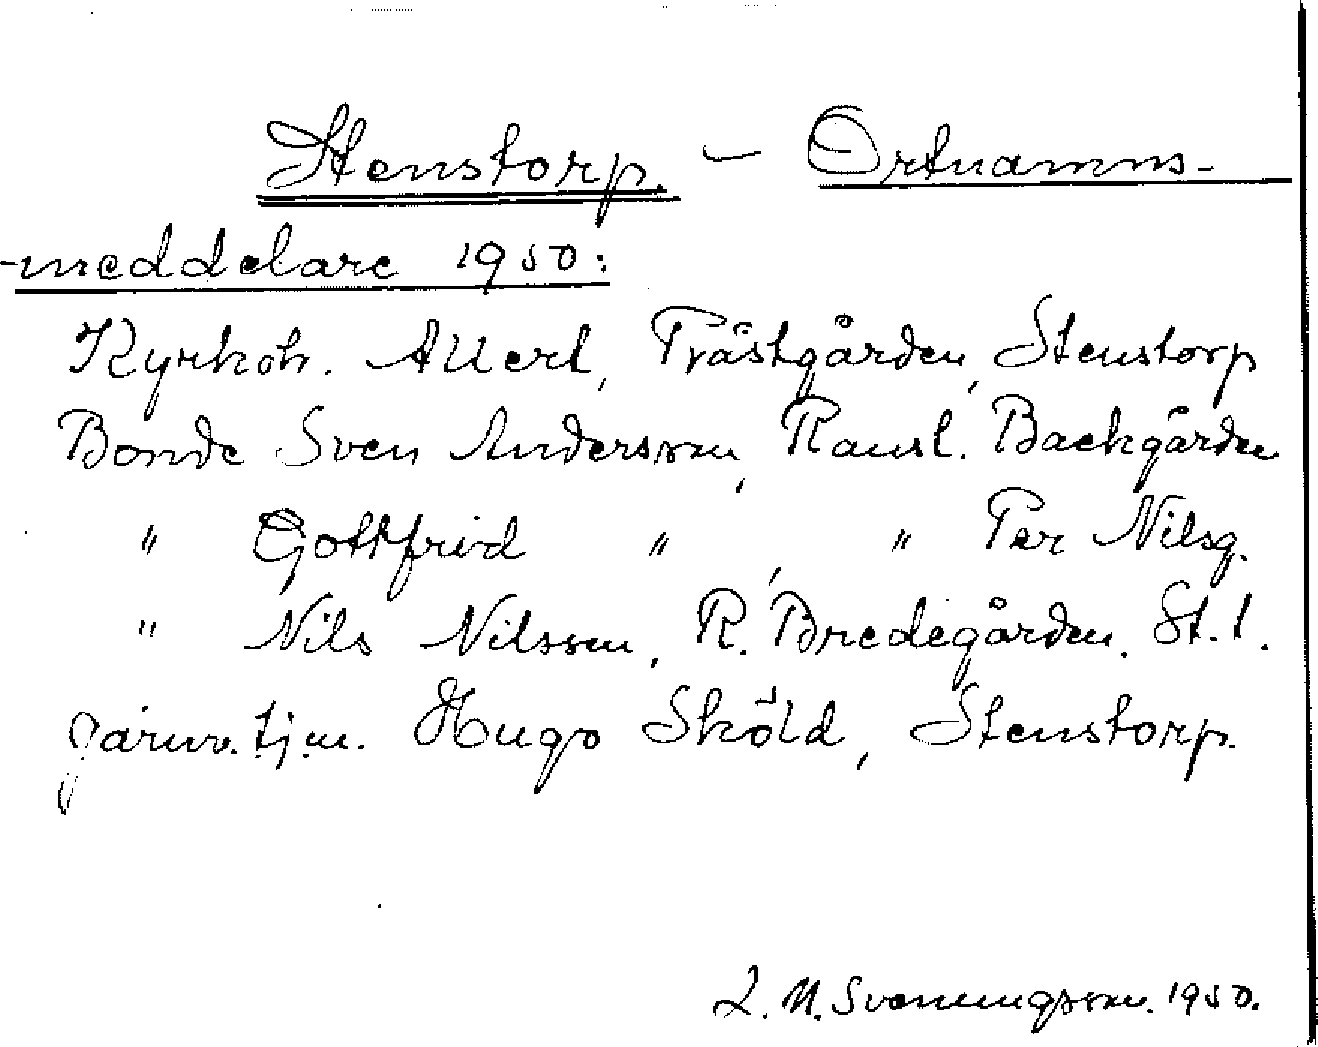 Stenstorp. – Ortnamns-
-meddelare 1950:
Kyrkoh. Allert, Prästgården, Stenstorp
Bonde Sven Andersson, Ransl. Backgården
" Gottfrid ", " Per Nilsg.
" Nils Nilsson, R. Bredegården. St. l.
Järnv. tj.m. Hugo Sköld, Stenstorp.
L. M. Svenungsson. 1950.